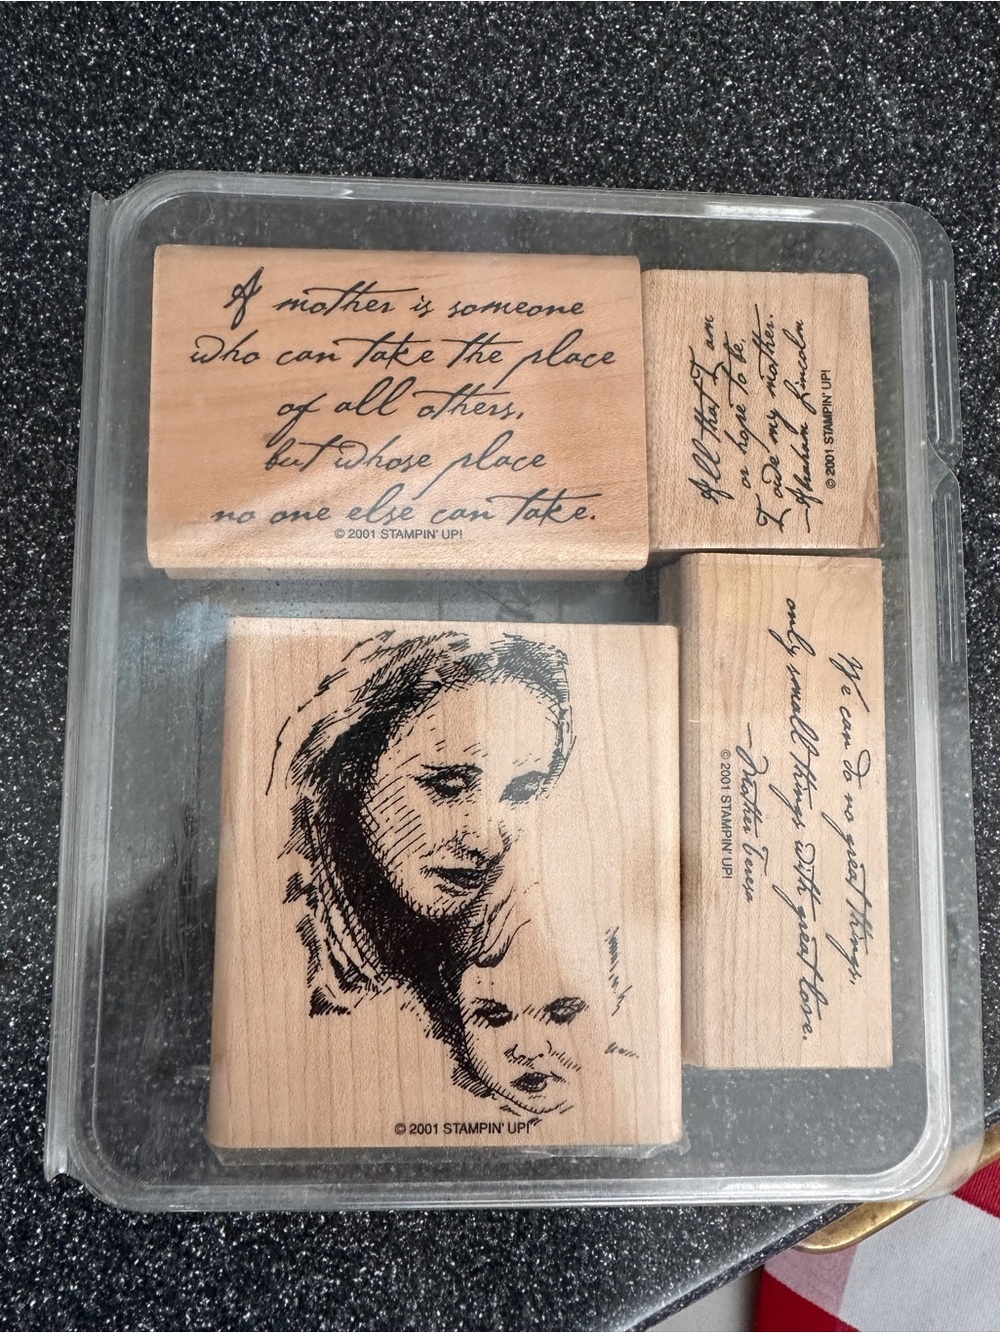 A mother is someone
who can take the place
of all others,
but whose place
no one else can take.
© 2001 STAMPIN' UP!
All that I am
or hope to be,
I owe my mother.
—Abraham Lincoln
© 2001 STAMPIN' UP!
We can do no great things,
only small things with great love.
—Mother Teresa
© 2001 STAMPIN' UP!
© 2001 STAMPIN' UP!